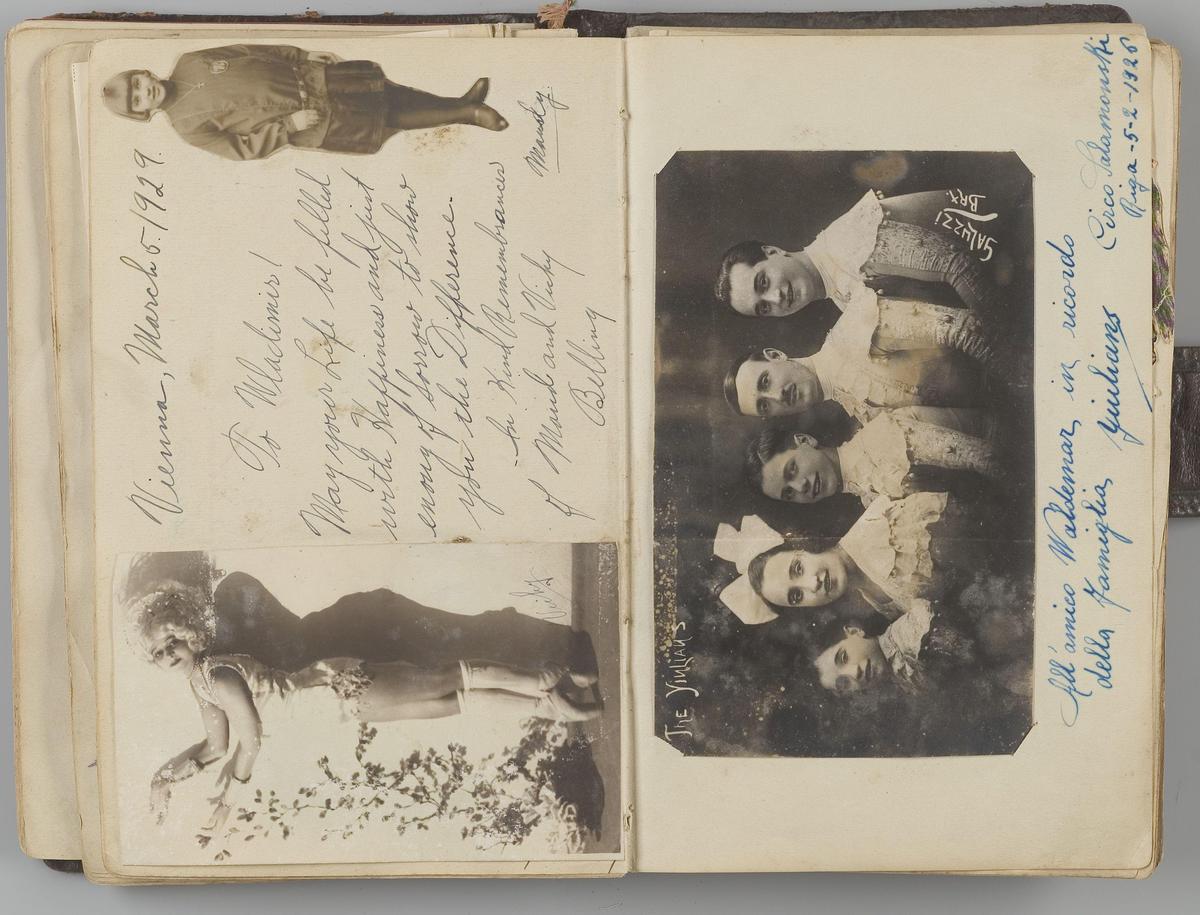 Vienna, March 5. 1929.
To Wladimir!
May your Life be filled
with Happiness and just
enoug of Sorrow to show
you the Difference.
In Kind Remembrances
of Maud and Vicky
Billing
Maudy.
THE YIULIAN'S
SALUZZI
BRX.
All'amico Waldemar, in ricordo
della Famiglia Yiulians
Circo Salamonski
Riga - 5-2-1926